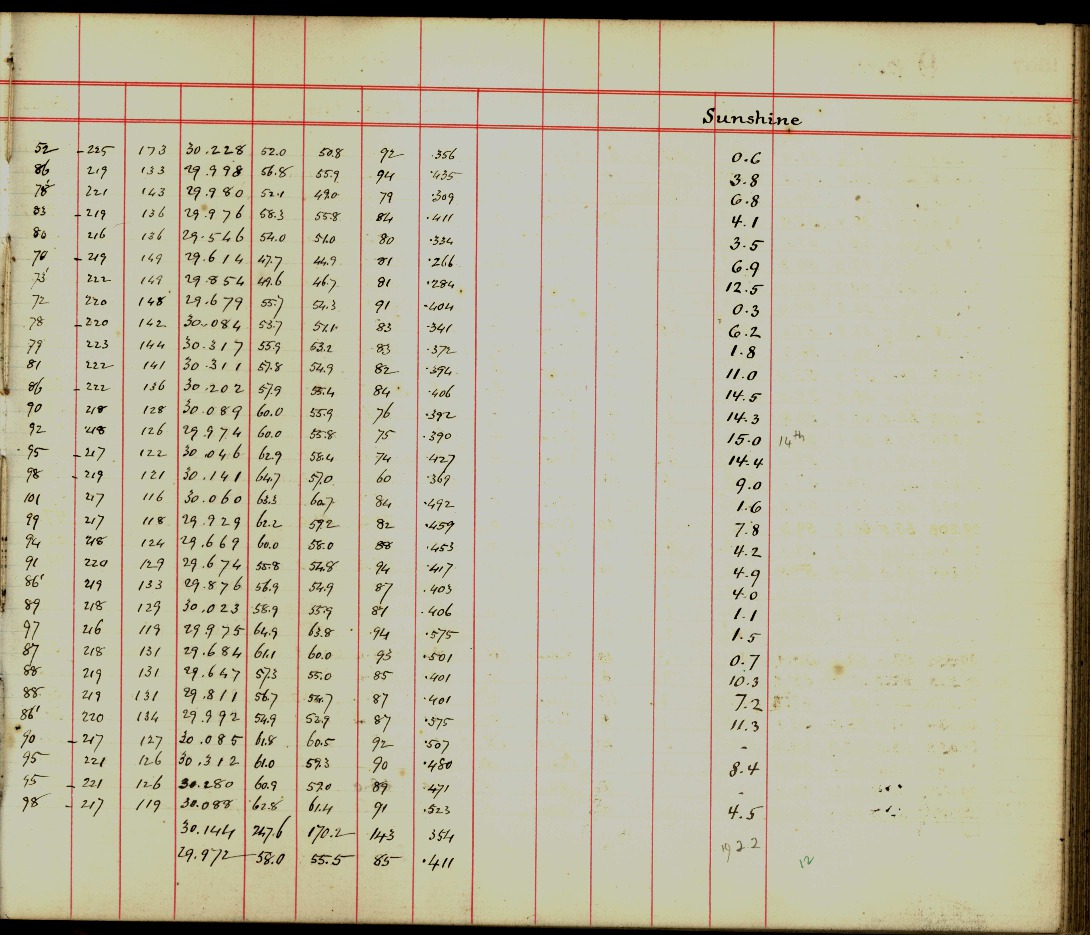 Sunshine
52 -225 173 30.228 52.0 50.8 92 .356 0.6
86 219 133 29.998 56.8 55.9 94 .435 3.8
78 221 143 29.980 52.1 49.0 79 .309 6.8
83 -219 136 29.976 58.3 55.8 84 .411 4.1
80 216 136 29.546 54.0 51.0 80 .334 3.5
70 -219 149 29.614 47.7 44.9 81 .266 6.9
73 222 149 29.854 49.6 46.7 81 .284 12.5
72 220 148 29.679 55.7 54.3 91 .404 0.3
78 -220 142 30.084 53.7 51.1 83 .341 6.2
79 223 144 30.317 55.9 53.2 83 .372 1.8
81 222 141 30.311 57.8 54.9 82 .394 11.0
86 -222 136 30.202 57.9 55.4 84 .406 14.5
90 218 128 30.089 60.0 55.9 76 .392 14.3
92 218 126 29.974 60.0 55.8 75 .390 15.0 14th
95 -217 122 30.046 62.9 58.4 74 .427 14.4
98 -219 121 30.141 64.7 57.0 60 .369 9.0
101 217 116 30.060 63.3 60.7 84 .492 1.6
99 217 118 29.929 62.2 59.2 82 .459 7.8
94 218 124 29.669 60.0 58.0 88 .453 4.2
91 220 129 29.674 55.8 54.8 94 .417 4.9
86 219 133 29.876 56.9 54.9 87 .403 4.0
89 218 129 30.023 58.9 55.9 81 .406 1.1
97 216 119 29.975 64.9 63.8 94 .575 1.5
87 218 131 29.684 61.1 60.0 93 .501 0.7
88 219 131 29.647 57.3 55.0 85 .401 10.3
88 219 131 29.811 56.7 54.7 87 .401 7.2
86 220 134 29.992 54.9 52.9 87 .375 11.3
90 -217 127 30.085 61.8 60.5 92 .507 -
95 221 126 30.312 61.0 59.3 90 .480 8.4
95 -221 126 30.280 60.9 59.0 89 .471 -
98 -217 119 30.088 62.8 61.4 91 .523 4.5
30.144 247.6 170.2 143 354 192.2
29.972 58.0 55.5 85 .411 12